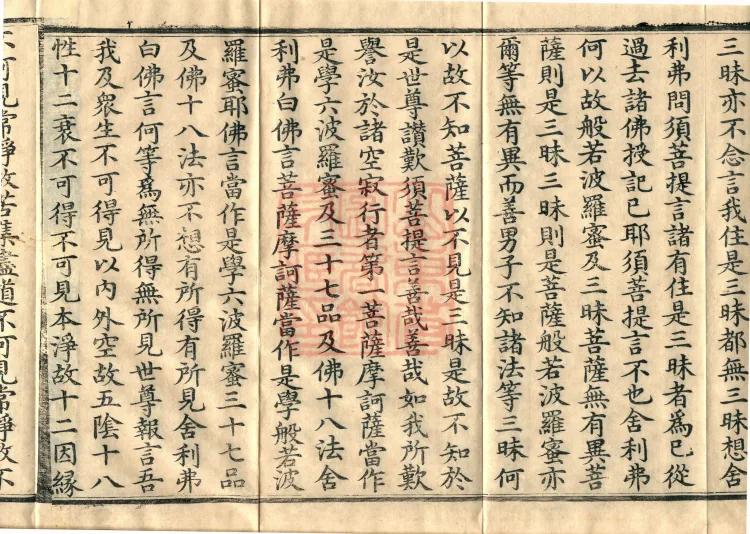 三昧亦不念言我住是三昧都無三昧想舍
利弗問須菩提言諸有住是三昧者爲已從
過去諸佛授記已耶須菩提言不也舍利弗
何以故般若波羅蜜及三昧菩薩無有異菩
薩則是三昧三昧則是菩薩般若波羅蜜亦
爾等無有異而善男子不知諸法等三昧何
以故不知菩薩以不見是三昧是故不知於
是世尊讃歎須菩提言善哉善哉如我所歎
譽汝於諸空寂行者第一菩薩摩訶薩當作
是學六波羅蜜及三十七品及佛十八法舍
利弗白佛言菩薩摩訶薩當作是學般若波
羅蜜耶佛言當作是學六波羅蜜三十七品
及佛十八法亦不想有所得有所見舍利弗
白佛言何等爲無所得無所見世尊報言吾
我及眾生不可得見以內外空故五陰十八
性十二衰不可得不可見本淨故十二因縁
不可見常淨故苦集盡道不可見常淨故不